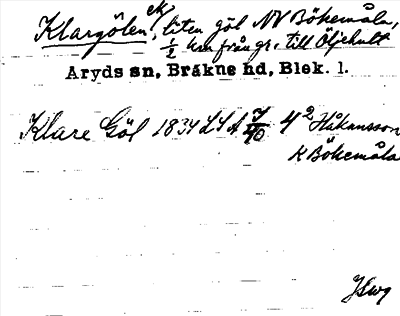 Klargölen, ek, liten göl NV Bökemåla,
1/2 km från gr. till Öljehult
Aryds sn, Bräkne hd, Blek. l.
Klare Göl 1834 LSA 4² Håkansson
K Bökemåla